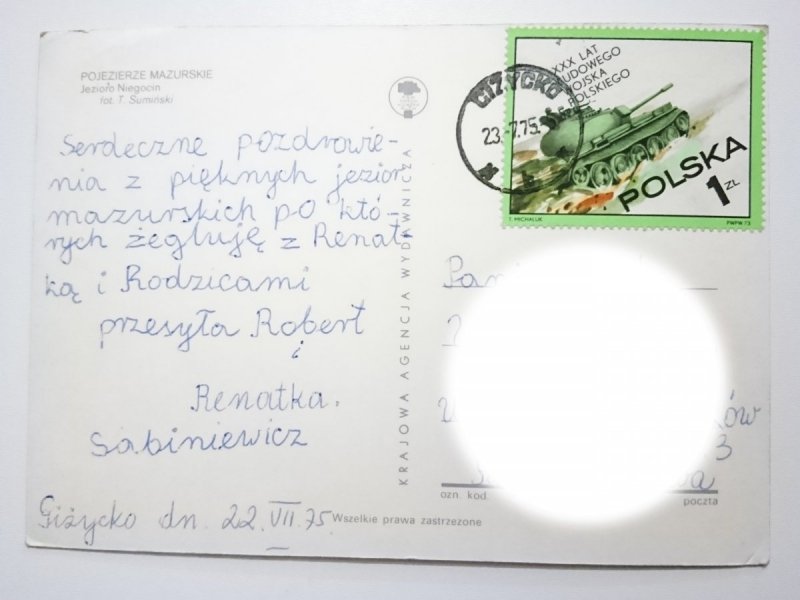 POJEZIERZE MAZURSKIE
Jezioro Niegocin
fot. T. Sumiński
Serdeczne pozdrowie-
nia z pięknych jezior
mazurskich po któ-
rych żegluję z Renat
ką i Rodzicami
przesyła Robert
i
Renatka.
Sabiniewicz
Giżycko dn. 22.VII.75
Wszelkie prawa zastrzeżone
KRAJOWA AGENCJA WYDAWNICZA
GIŻYCKO
23.-7.75
XXX LAT
LUDOWEGO
WOJSKA
POLSKIEGO
POLSKA
1 ZŁ
T. MICHALUK
PWPW 73
3
ozn. kod
poczta